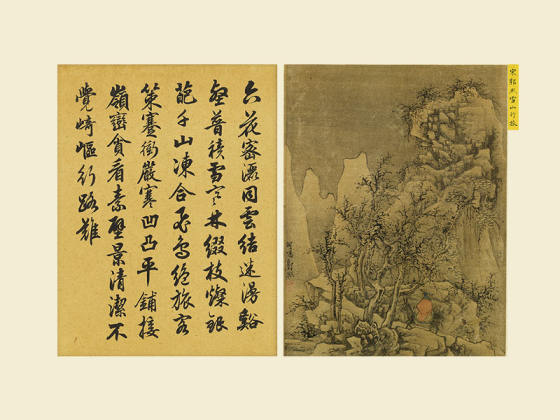 六花密灑同雲結迷漫谿
壑普積雪林綴枝燦銀
葩千山凍合飛鳥絶旅客
策蹇衝嚴寒凹凸平鋪接
嶺巒貪看素壁景清潔不
覺崎嶇行路難
宋郭熙雪山行旅